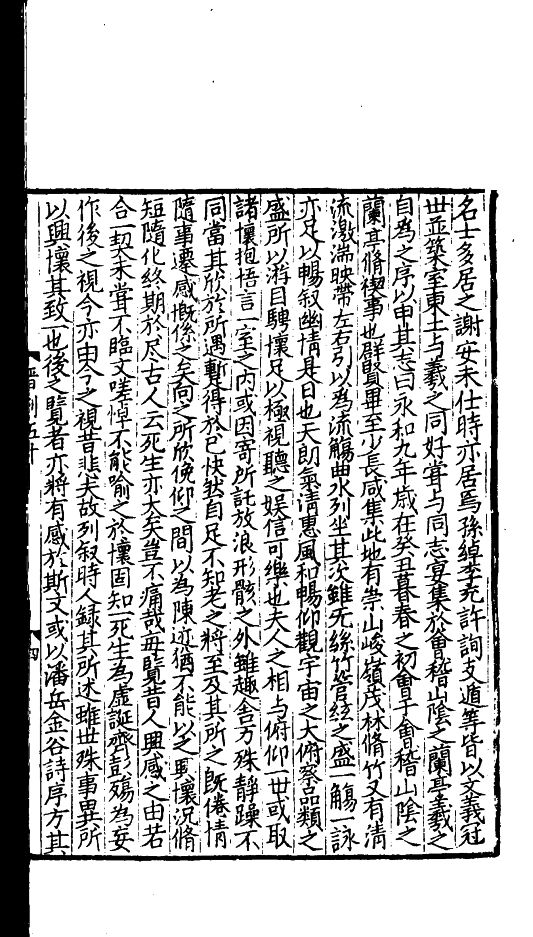 名士多居之謝安未仕時亦居焉孫綽李充許詢支遁等皆以文義冠
世並築室東土与羲之同好甞与同志宴集於會稽山陰之蘭亭羲之
自為之序以申其志曰永和九年歲在癸丑暮春之初會于會稽山陰之
蘭亭脩禊事也群賢畢至少長咸集此地有崇山峻嶺茂林脩竹又有清
流激湍映帶左右引以為流觴曲水列坐其次雖无絲竹管絃之盛一觴一詠
亦足以暢叙幽情是日也天朗氣清惠風和暢仰觀宇宙之大俯察品類之
盛所以游目騁懷足以極視聽之娛信可樂也夫人之相与俯仰一世或取
諸懷抱悟言一室之內或因寄所託放浪形骸之外雖趣舍万殊靜躁不
同當其欣於所遇暫得於已快然自足不知老之將至及其所之既倦情
隨事遷感慨係之矣向之所欣俛仰之間以為陳迹猶不能以之興懷況脩
短隨化終期於尽古人云死生亦大矣豈不痛哉每覽昔人興感之由若
合一契未甞不臨文嗟悼不能喻之於懷固知一死生為虛誕齊彭殤為妄
作後之視今亦由今之視昔悲夫故列叙時人録其所述雖世殊事異所
以興懷其致一也後之覽者亦將有感於斯文或以潘岳金谷詩序方其
晉列五十
四